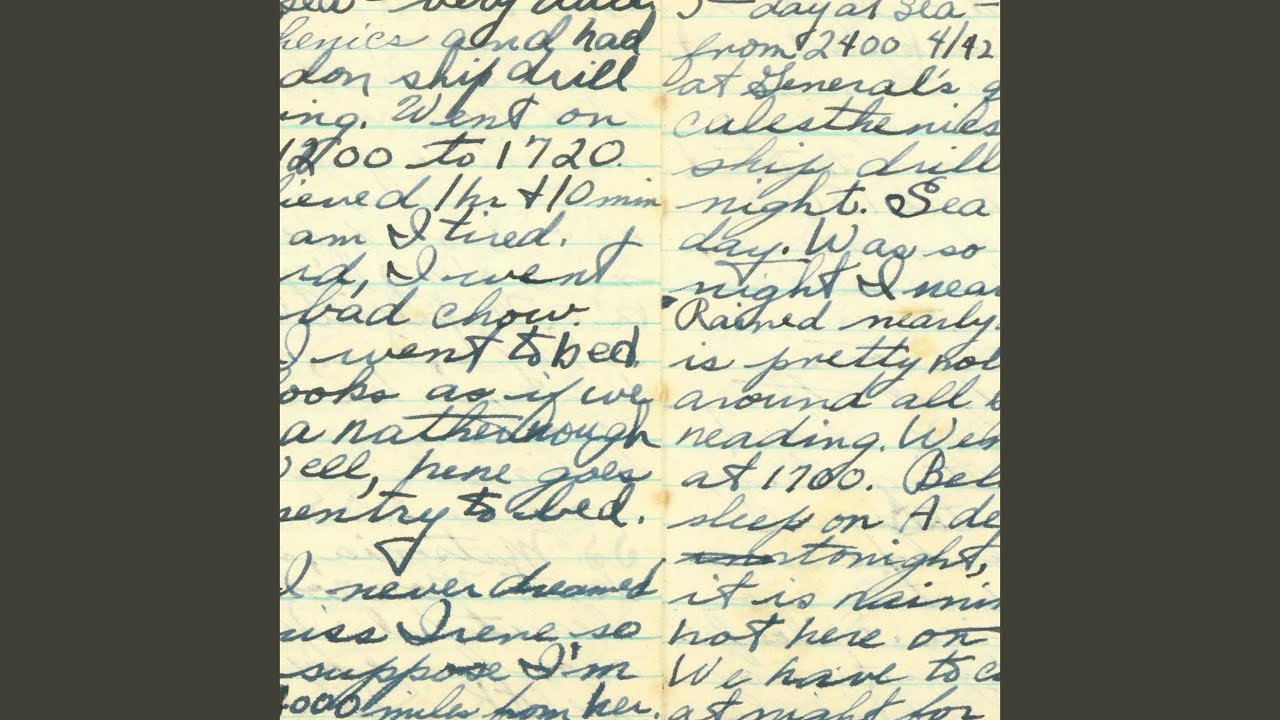 sea - very
henics and had
don ship drill
ing. Went on
1200 to 1720.
ieved 1 hr + 10 min
am I tired.
rd, I went
bad chow.
I went to bed.
ooks as if we
a nather nough
ell, here goes
sentry to bed.
I never dreamed
iss Irene so
suppose I'm
4000 miles from her.
day at sea -
from 2400 4/42
at General's q
calesthenics
ship drill
night. Sea
day. Was so
night I near
Rained nearly
is pretty hot
around all
reading. Wen
at 1700. Bel
sleep on A de
tonight,
it is rainin
hot here on
We have to c
at night for